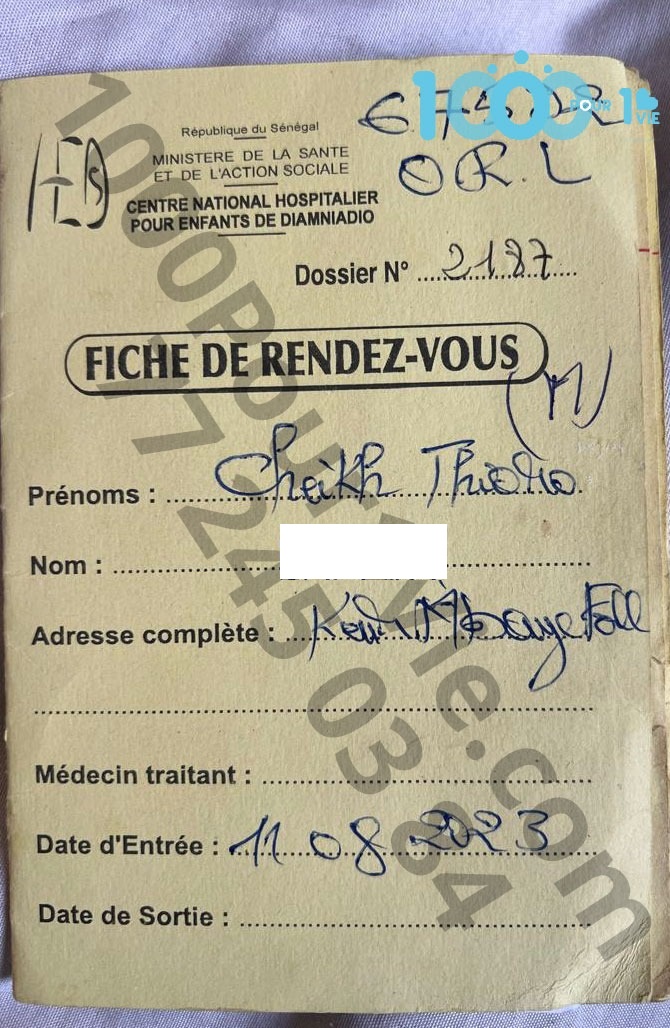 1000 POUR 1 VIE
République du Sénégal
MINISTERE DE LA SANTE
ET DE L'ACTION SOCIALE
CENTRE NATIONAL HOSPITALIER
POUR ENFANTS DE DIAMNIADIO
O R. L
Dossier N° 2187
FICHE DE RENDEZ-VOUS
(M)
Prénoms : Cheikh
Nom :
Adresse complète : Keur Mbaye Fall
Médecin traitant :
Date d'Entrée : 11 08 2023
Date de Sortie :
1000PourVie.com
77 245 03 84